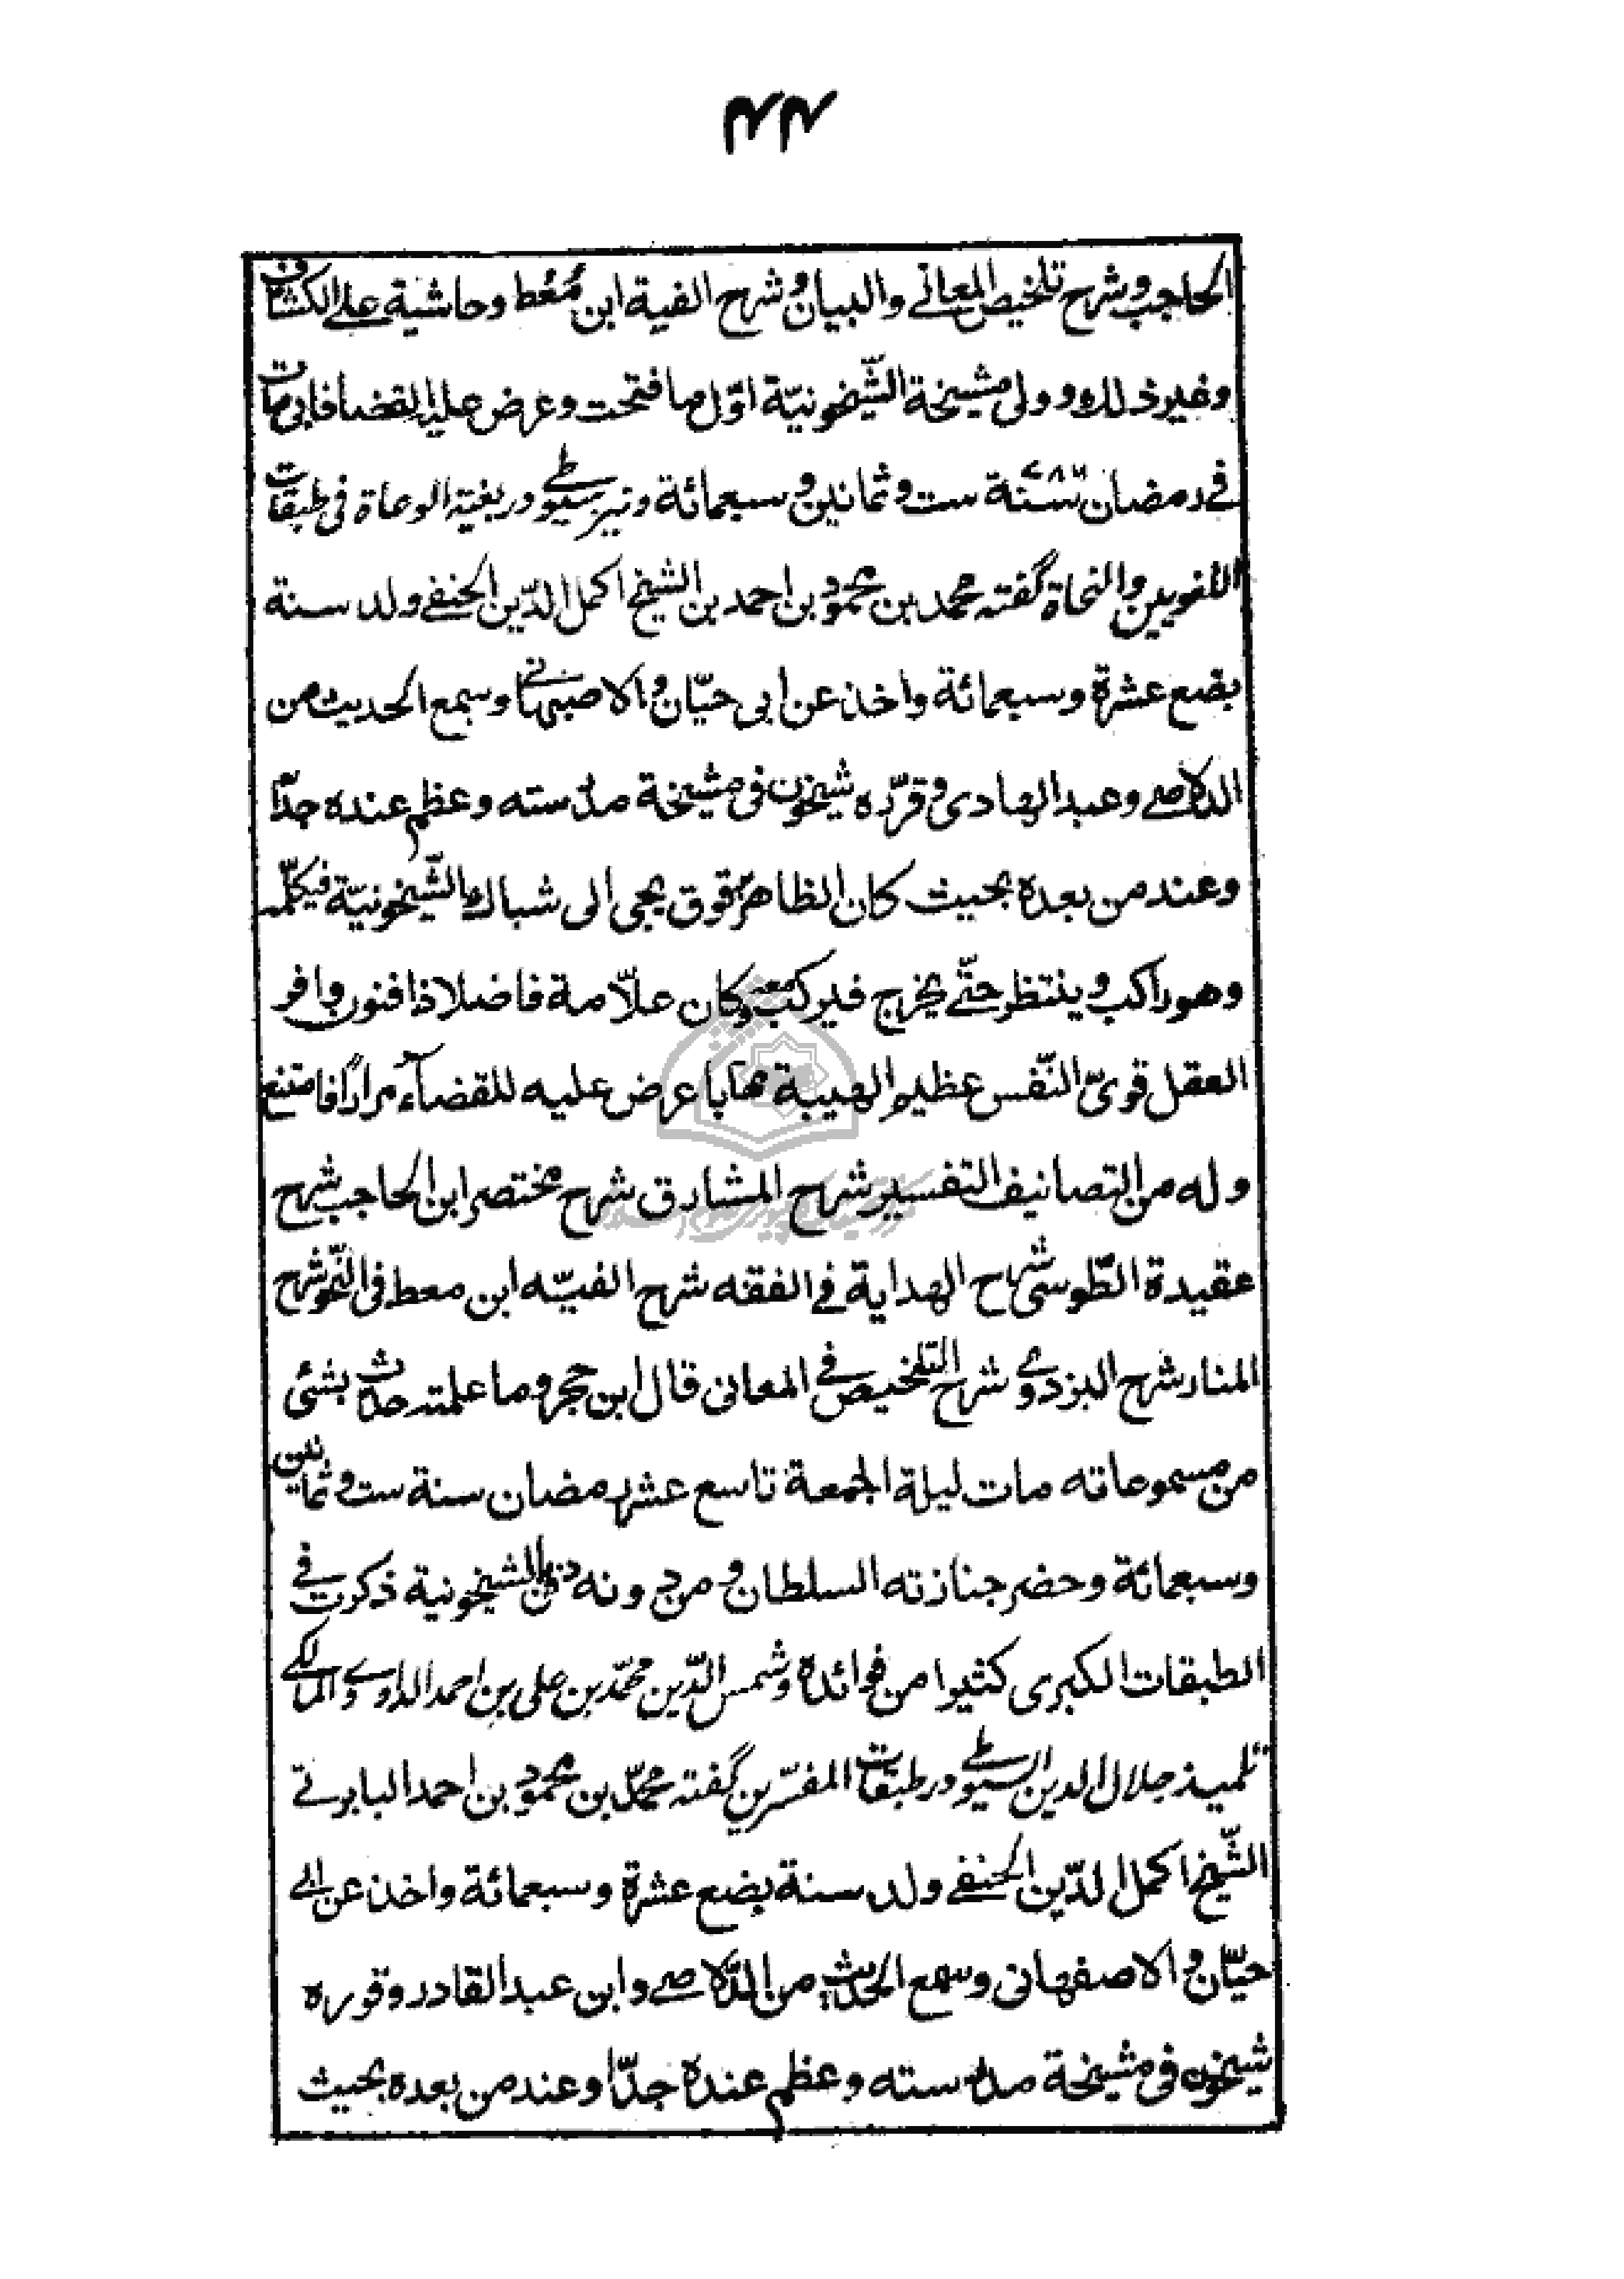 ۷۷
الحاجب و شرح تلخيص المعانے والبيان و شرح الفية ابن مُعُط وحاشية علے الكشاف
وغير ذلك وولى مشيخة الشّيخونيّة اوّل ما فتحت وعرض عليه القضا فابى مات
فے رمضان سنة ست وثمانين و سبعمائة و نيز سيوطے در بغية الوعاة فى طبقات
اللغويين والنحاة گفته محمد بن محمود بن احمد بن الشيخ اكمل الدّين الحنفے ولد سنة
بضع عشرة وسبعمائة واخذ عن ابى حيّان والاصبهانے وسمع الحديث من
الدلاصے وعبد الهادى وقرّره شيخون فى مشيخة مدرسته وعظم عنده جدّا
وعند من بعده بحيث كان الظاهر برقوق يجى الى شباك الشّيخونيّة فيكلّمه
وهو راكب وينتظر حتّے يخرج فيركب معه وكان علّامة فاضلا ذا فنون وافر
العقل قوىّ النّفس عظيم الهيبة مهابا عرض عليه للقضاءُ مراراً فامتنع
وله من التصانيف التفسير شرح المشارق شرح مختصر ابن الحاجب شرح
عقيدة الطّوسى شرح الهداية فے الفقه شرح الفيّه ابن معط فى النّحو شرح
المنار شرح البزدوے شرح التلخيص فے المعانى قال ابن حجر وما علمته حدّث بشئى
من مسموعاته مات ليلة الجمعة تاسع عشر رمضان سنة ست و ثمانين
وسبعمائة وحضر جنازته السلطان و من دونه دفن بالشيخونية ذكرت فے
الطبقات الكبرى كثيرا من فوائده و شمس الدّين محمّد بن على بن احمد الداودے المالكے
تلميذ جلال الدين السيوطے در طبقات المفسّرين گفته محمّد بن محمود بن احمد البابرتے
الشّيخ اكمل الدّين الحنفے ولد سنة بضع عشرة وسبعمائة واخذ عن ابے
حيّان والاصفهانى وسمع الحديث من الدّلاصے وابن عبد القادر وقرره
شيخون فى مشيخة مدرسته وعظم عنده جدّا وعند من بعده بحيث